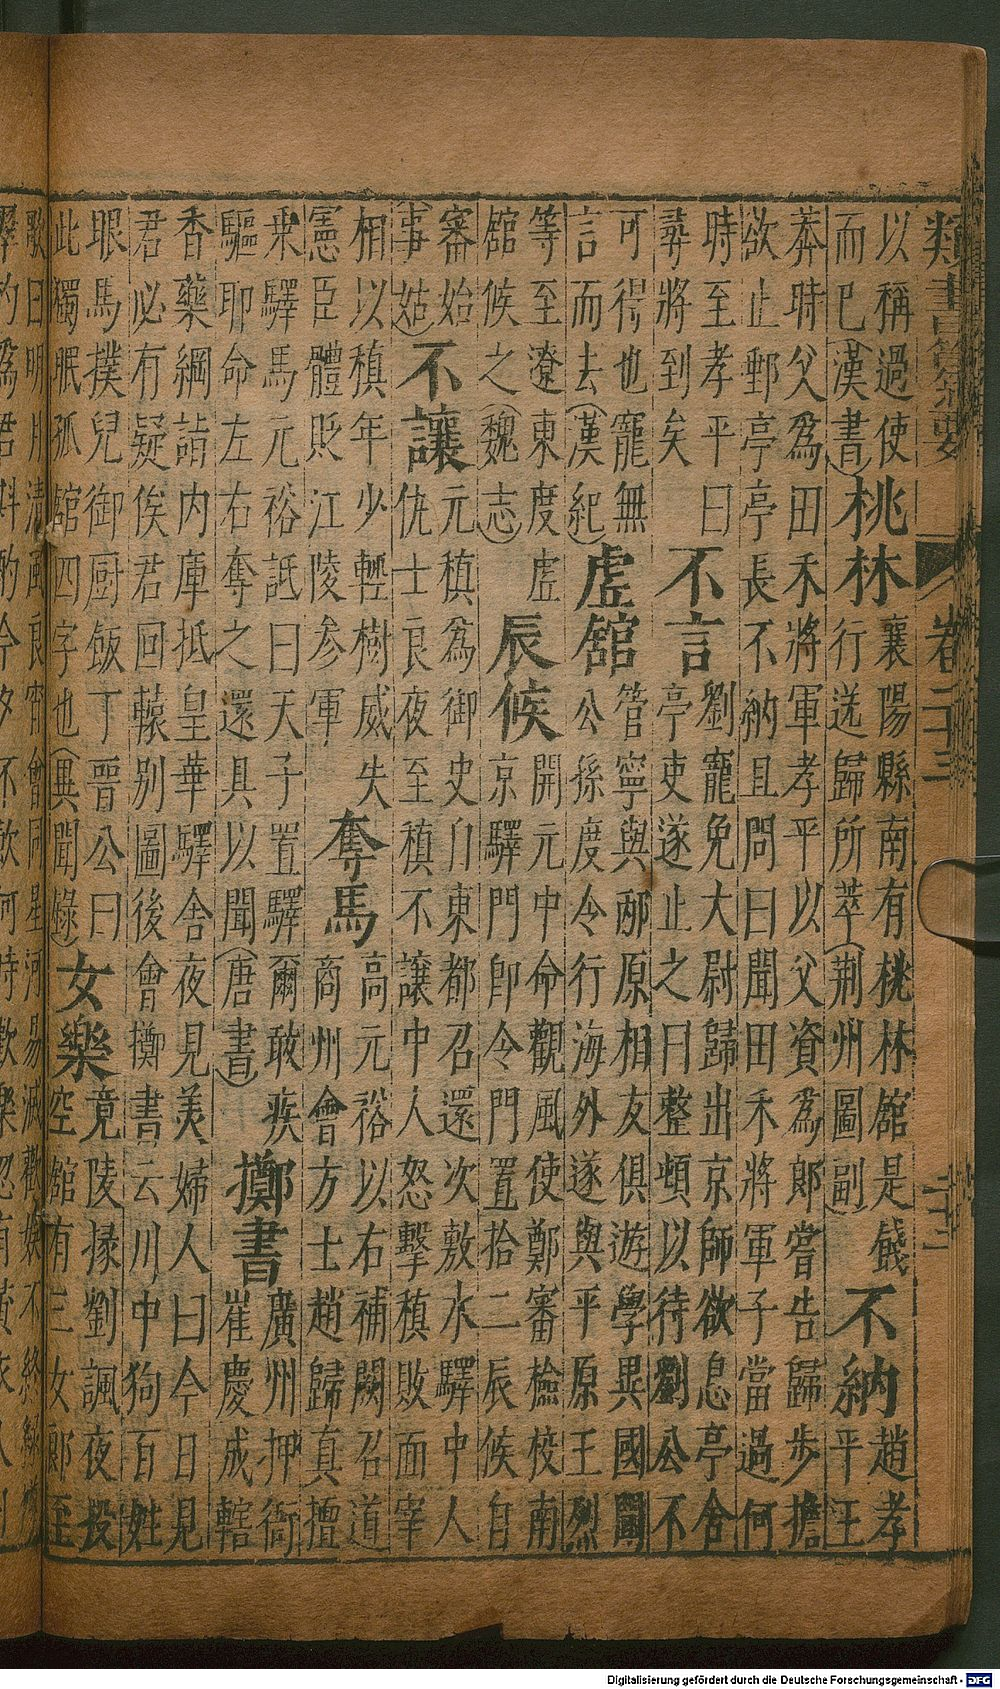 類書纂要 卷二十三 二十三
以稱過使
而已(漢書)
桃林
襄陽縣南有桃林館是餞
行送歸所萃(荆州圖副)
不納
趙孝
平王
莽時父為田禾將軍孝平以父資為郎嘗告歸步擔
欲止郵亭亭長不納且問曰聞田禾將軍子當過何
時至孝平曰
尋將到矣
不言
劉寵免大尉歸出京師欲息亭舍
亭吏遂止之曰整頓以待劉公不
可得也寵無
言而去(漢紀)
虛館
管寧與邴原相友俱遊學異國聞
公孫度令行海外遂與平原王烈
等至遼東度虛
館候之(魏志)
辰候
開元中命觀風使鄭審檢校南
京驛門即令門置拾二辰候自
審始
事始)
不讓
元稹為御史自東都召還次敷水驛中人
仇士良夜至稹不讓中人怒擊稹敗面宰
相以稹年少輕樹威失
憲臣體貶江陵參軍
奪馬
高元裕以右補闕召道
商州會方士趙歸真擅
乗驛馬元裕詆曰天子置驛爾敢疾
驅耶命左右奪之還具以聞(唐書)
擲書
廣州押衙
崔慶成轄
香藥綱詣内庫抵皇華驛舍夜見美婦人曰今日見
君必有疑俟君回轅别圖後會擲書云川中狗百姓
眼馬撲兒御厨飯丁晋公曰
此獨眠孤館四字也(異聞錄)
女樂
竟陵掾劉諷夜投
空館有三女郎至
歌曰明月清風良宵會同星河易滅歡娛不終綠樽
翠杓為君斟酌今夕不飲何時歡樂忽有黄衣人
Digitalisierung gefördert durch die Deutsche Forschungsgemeinschaft - DFG